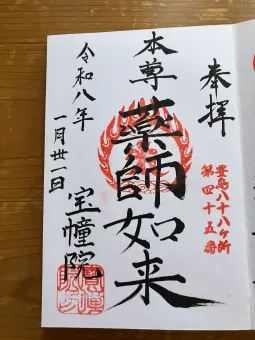 奉拝
豊島八十八ヶ所
第四十五番
本尊
薬師如来
令和八年
一月卅一日
宝幢院